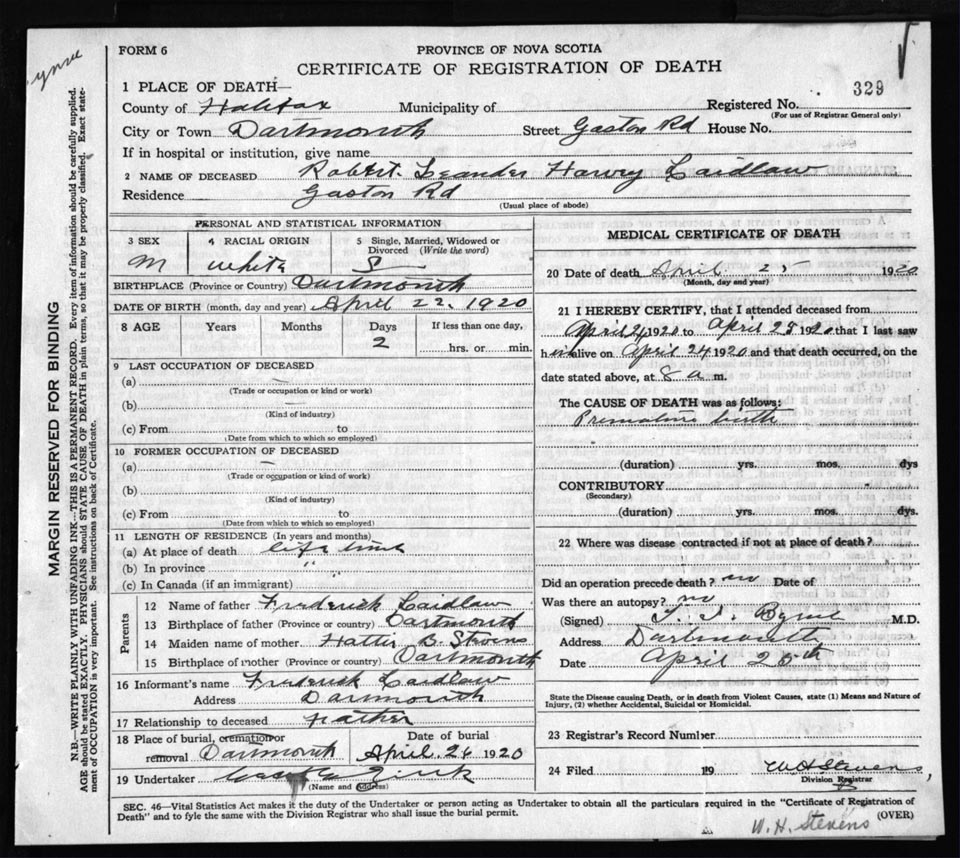 FORM 6
PROVINCE OF NOVA SCOTIA
CERTIFICATE OF REGISTRATION OF DEATH
329
1 PLACE OF DEATH—
County of Halifax Municipality of Registered No.
(For use of Registrar General only)
City or Town Dartmouth Street Gaston Rd House No.
If in hospital or institution, give name
2 NAME OF DECEASED Robert. Leander Harvey Laidlaw
Residence Gaston Rd
(Usual place of abode)
PERSONAL AND STATISTICAL INFORMATION
3 SEX 4 RACIAL ORIGIN 5 Single, Married, Widowed or Divorced (Write the word)
M white S
BIRTHPLACE (Province or Country) Dartmouth
DATE OF BIRTH (month, day and year) April 22. 1920
8 AGE Years Months Days If less than one day,
2 hrs. or min.
9 LAST OCCUPATION OF DECEASED
(a) —
(Trade or occupation or kind or work)
(b) —
(Kind of industry)
(c) From to
(Date from which to which so employed)
10 FORMER OCCUPATION OF DECEASED
(a) —
(Trade or occupation or kind of work)
(b)
(Kind of industry)
(c) From to
(Date from which to which so employed)
11 LENGTH OF RESIDENCE (In years and months)
(a) At place of death life time
(b) In province " "
(c) In Canada (if an immigrant)
Parents
12 Name of father Frederick Laidlaw
13 Birthplace of father (Province or country) Dartmouth
14 Maiden name of mother Hattie B. Stevens
15 Birthplace of mother (Province or country) Dartmouth
16 Informant's name Frederick Laidlaw
Address Dartmouth
17 Relationship to deceased Father
18 Place of burial, cremation or removal Dartmouth
Date of burial April. 26 1920
19 Undertaker Zink
(Name and address)
MEDICAL CERTIFICATE OF DEATH
20 Date of death April 25 1920
(Month, day and year)
21 I HEREBY CERTIFY, that I attended deceased from
April 24 1920 to April 25 1920 that I last saw
him alive on April 24 1920 and that death occurred, on the
date stated above, at 8 a m.
The CAUSE OF DEATH was as follows:
Premature birth
(duration) yrs. mos. dys
CONTRIBUTORY
(Secondary)
(duration) yrs. mos. dys.
22 Where was disease contracted if not at place of death?
Did an operation precede death? no Date of
Was there an autopsy? no
(Signed) Byrne M.D.
Address Dartmouth
Date April 25th
State the Disease causing Death, or in death from Violent Causes, state (1) Means and Nature of
Injury, (2) whether Accidental, Suicidal or Homicidal.
23 Registrar's Record Number
24 Filed 19 W.H. Stevens,
Division Registrar
SEC. 46—Vital Statistics Act makes it the duty of the Undertaker or person acting as Undertaker to obtain all the particulars required in the "Certificate of Registration of
Death" and to fyle the same with the Division Registrar who shall issue the burial permit.
(OVER)
W. H. Stevens
MARGIN RESERVED FOR BINDING
N.B.—WRITE PLAINLY WITH UNFADING INK—THIS IS A PERMANENT RECORD. Every item of information should be carefully supplied.
AGE should be stated EXACTLY. PHYSICIANS should STATE CAUSE OF DEATH in plain terms, so that it may be properly classified. Exact state-
ment of OCCUPATION is very important. See instructions on back of Certificate.